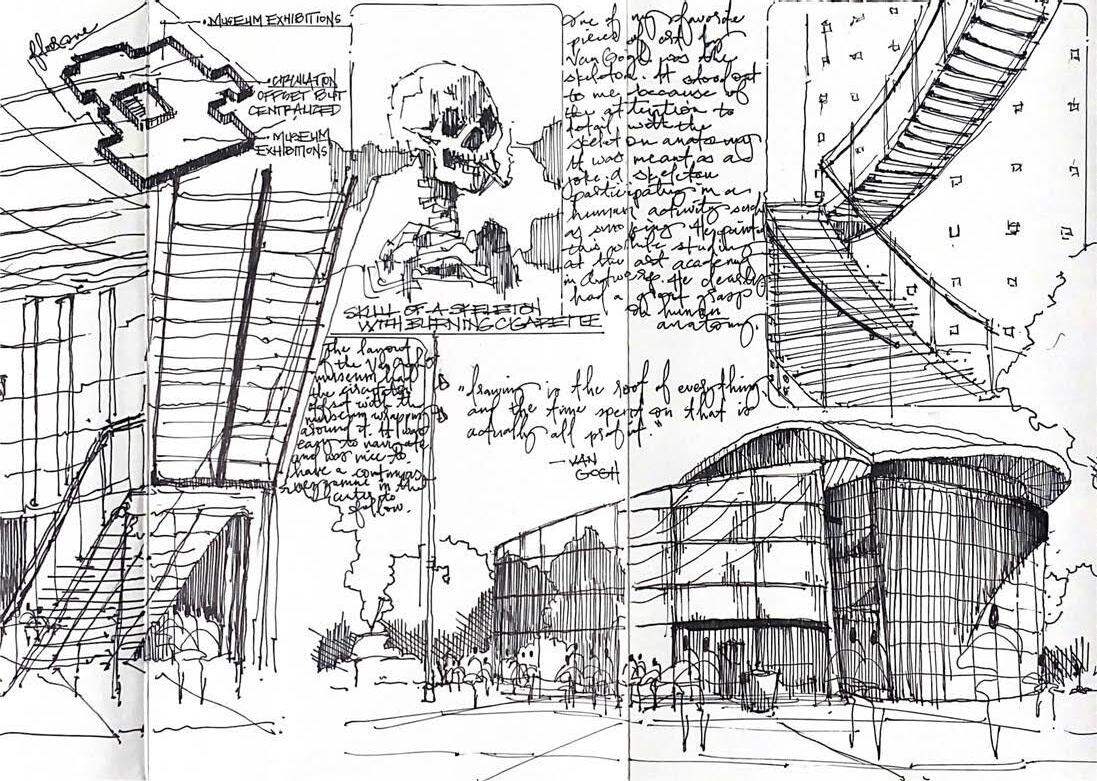 MUSEUM EXHIBITIONS
CIRCULATION
OFFSET BUT
CENTRALIZED
MUSEUM
EXHIBITIONS
One of my favorite
pieces of art by
Van Gogh was the
skeleton. It stood out
to me because of
the attention to
detail with the
skeleton anatomy
It was meant as a
joke, a skeleton
participating in a
human activity such
as smoking. He painted
this while studying
at the art academy
in Antwerp. He clearly
had a great grasp
on human
anatomy.
SKULL OF A SKELETON
WITH BURNING CIGARETTE
the layout
of the Van Gogh
museum had
the circulation
offset with the
museum wrapping
around it. It was
easy to navigate
and was nice to
have a continuous
in the
center to
follow.
"Drawing is the root of everything,
and the time spent on that is
actually all profit."
— VAN
GOGH